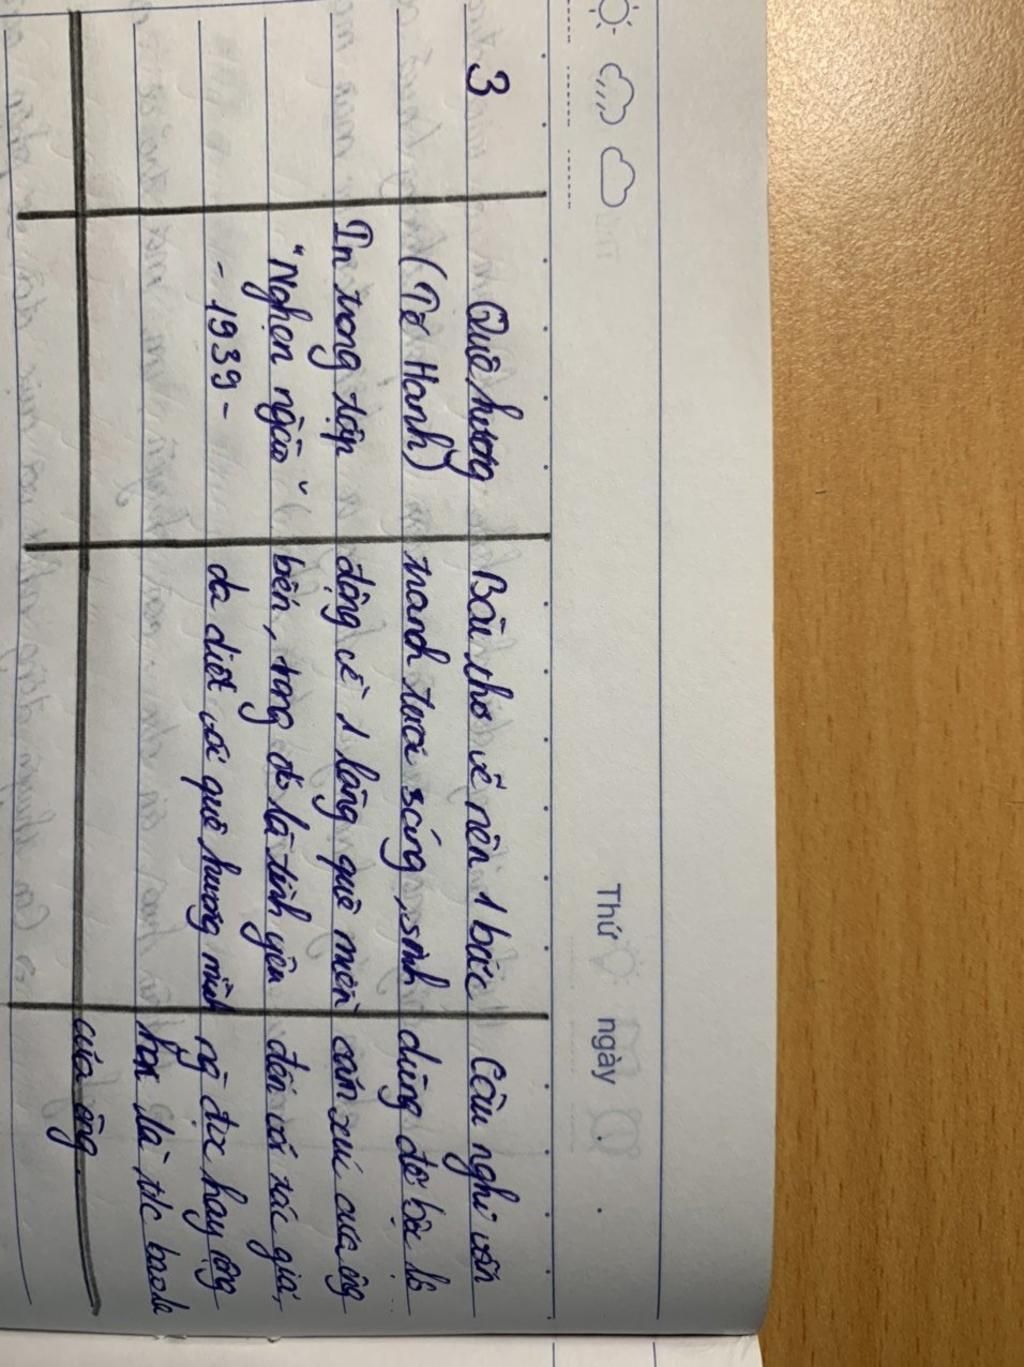 Thứ ngày
3
Quê hương
(Tế Hanh)
In trong tập
"Nghẹn ngào"
- 1939 -
Bài thơ vẽ nên 1 bức
tranh tươi sáng, sinh
động về 1 làng quê miền
biển, trong đó là tình yêu
da diết với quê hương mình
Câu nghi vấn
dùng để bộc lộ
cảm xúc của ông
đến với tác giả,
ng đọc hay ông
hơn là t/c bao la
của ông.